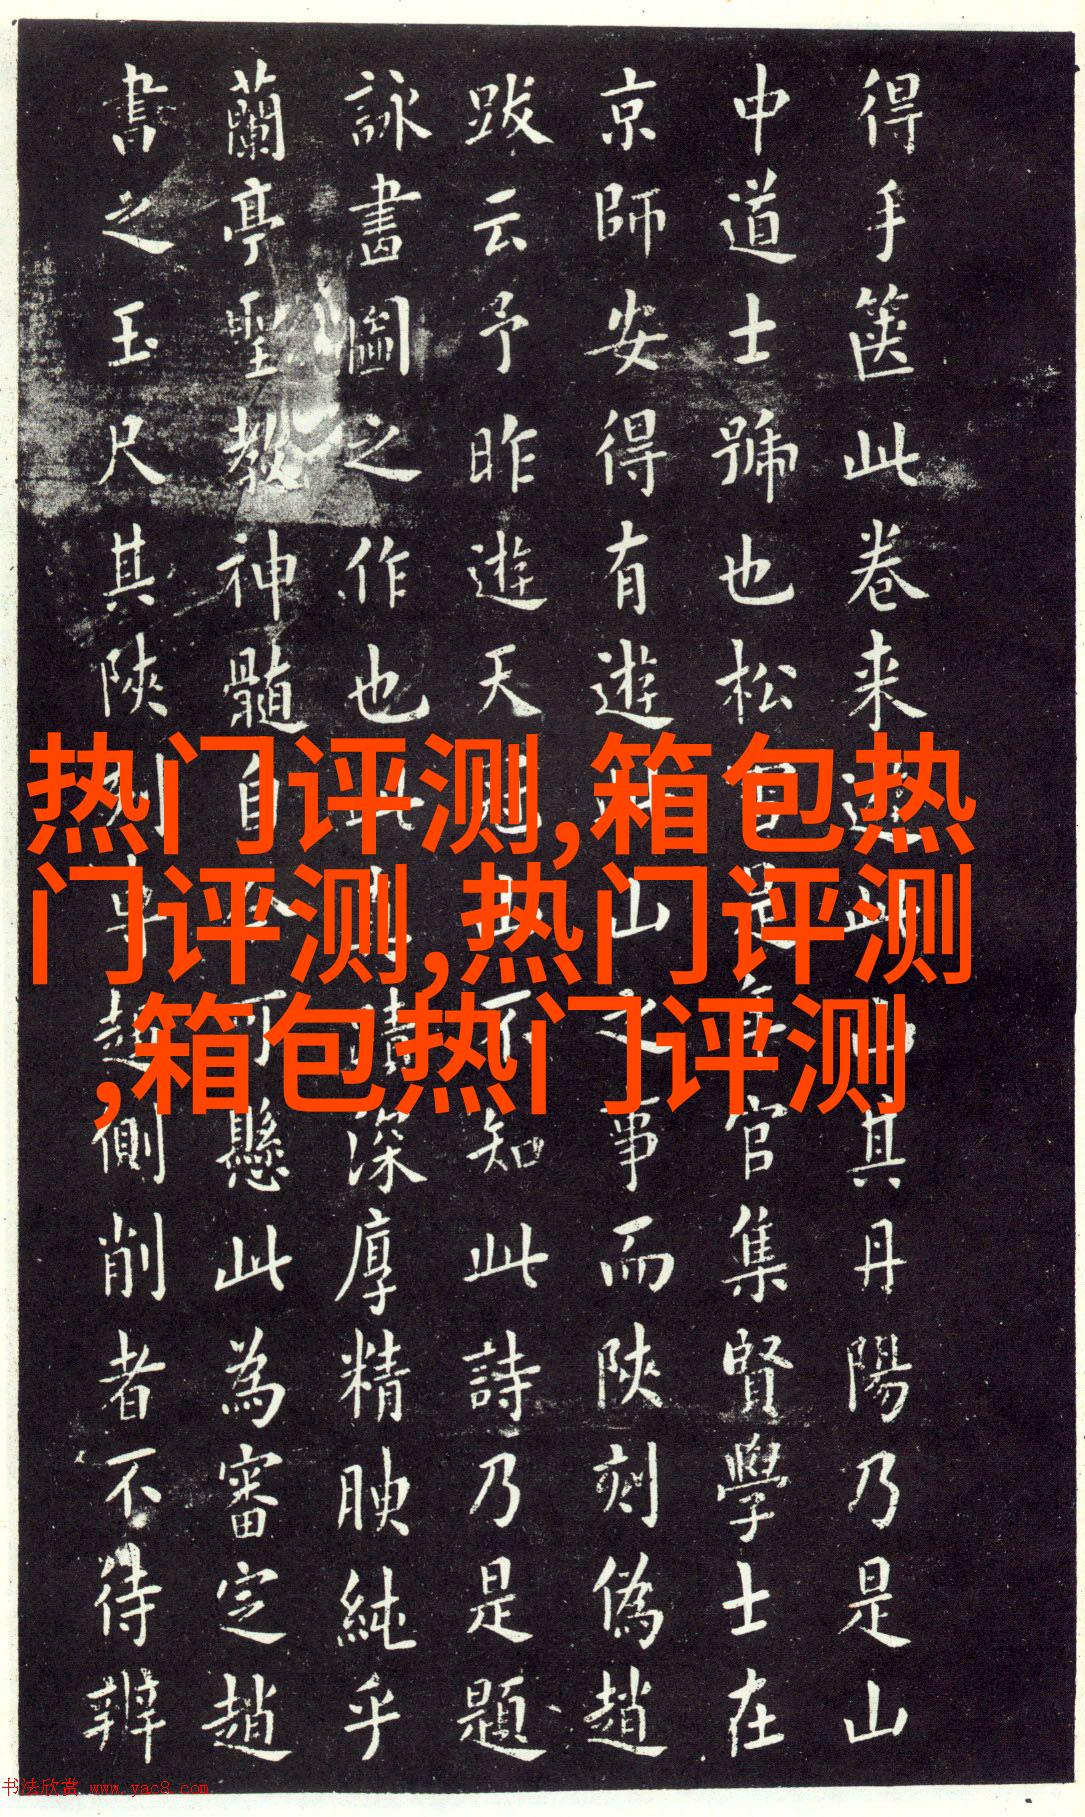 得手篋此卷来其丹陽乃是山
中道士號也松官集賢學士在
京師安得有遊山之事而陝刻偽趙
跋云予昨遊天不知此詩乃是題
詠畫圖之作也深厚精腴純乎
蘭亭聖教神髓自可懸此為審定趙
書之玉尺其陝刻專趨側削者不待辨
热门评测,箱包热
门评测,热门评测
,箱包热门评测
书法欣赏 www.yac8.com